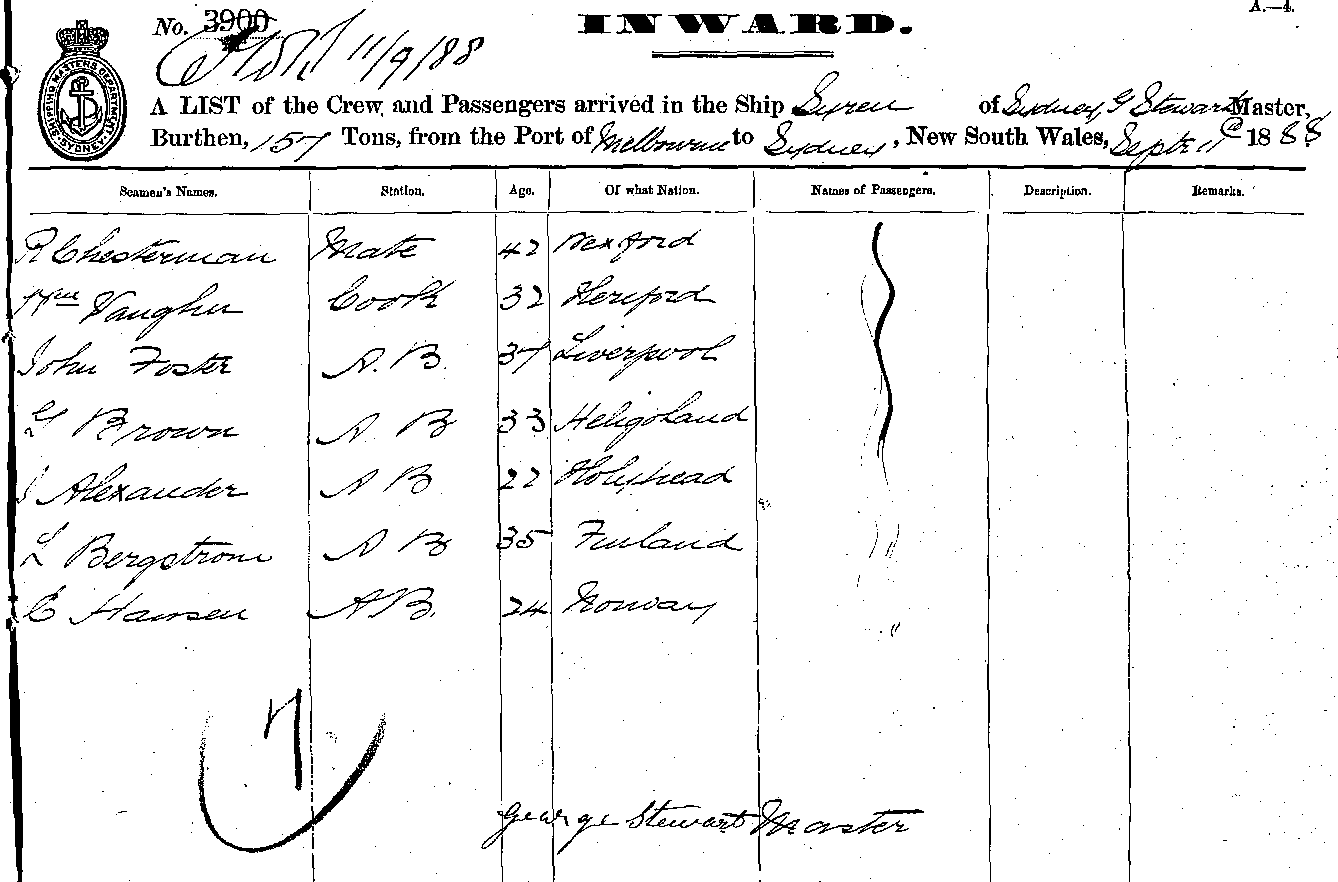 A.—4.
No. 3900
INWARD.
11/9/88
SHIPPING MASTERS DEPARTMENT SYDNEY
A LIST of the Crew and Passengers arrived in the Ship Syren of Sydney, G Stewart Master,
Burthen, 157 Tons, from the Port of Melbourne to Sydney, New South Wales, Septr 11th 1888
Seamen's Names. Station. Age. Of what Nation. Names of Passengers. Description. Remarks.
R Chesterman Mate 42 Wexford
Wm Vaughn Cook 32 Hereford
John Foster A.B. 37 Liverpool
G Brown A B 33 Heligoland
J Alexander A B 22 Holyhead
L Bergstrom A B 35 Finland
C Hansen A B. 24 Norway
7
George Stewart Master